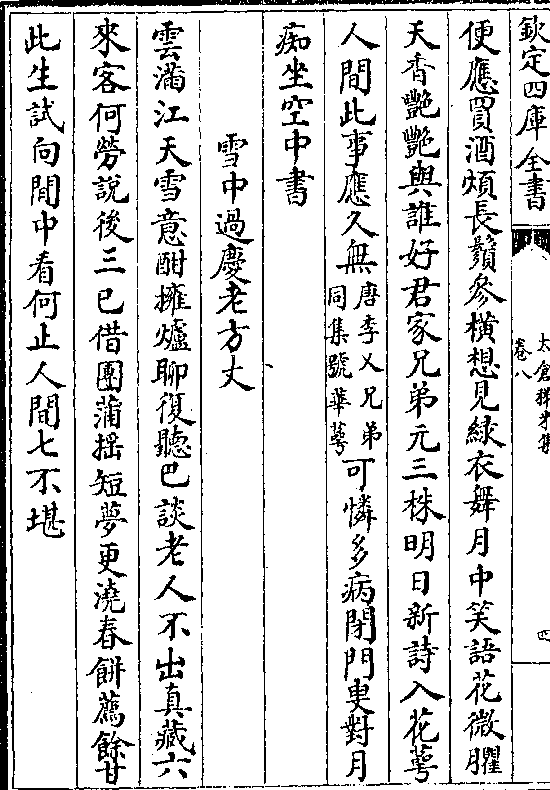 欽定四庫全書
太倉稊米集
卷八
四
便應買酒煩長鬚參橫想見緑衣舞月中笑語花微臞
天香艷艷與誰好君家兄弟元三株明日新詩入花萼
人間此事應久無唐李乂兄弟同集號華萼可憐多病閉門叟對月
痴坐空中書
雪中過慶老方丈
雲滿江天雪意酣擁爐聊復聽巴談老人不出真藏六
來客何勞說後三已借團蒲揺短夢更澆春餅薦餘甘
此生試向閒中看何止人間七不堪